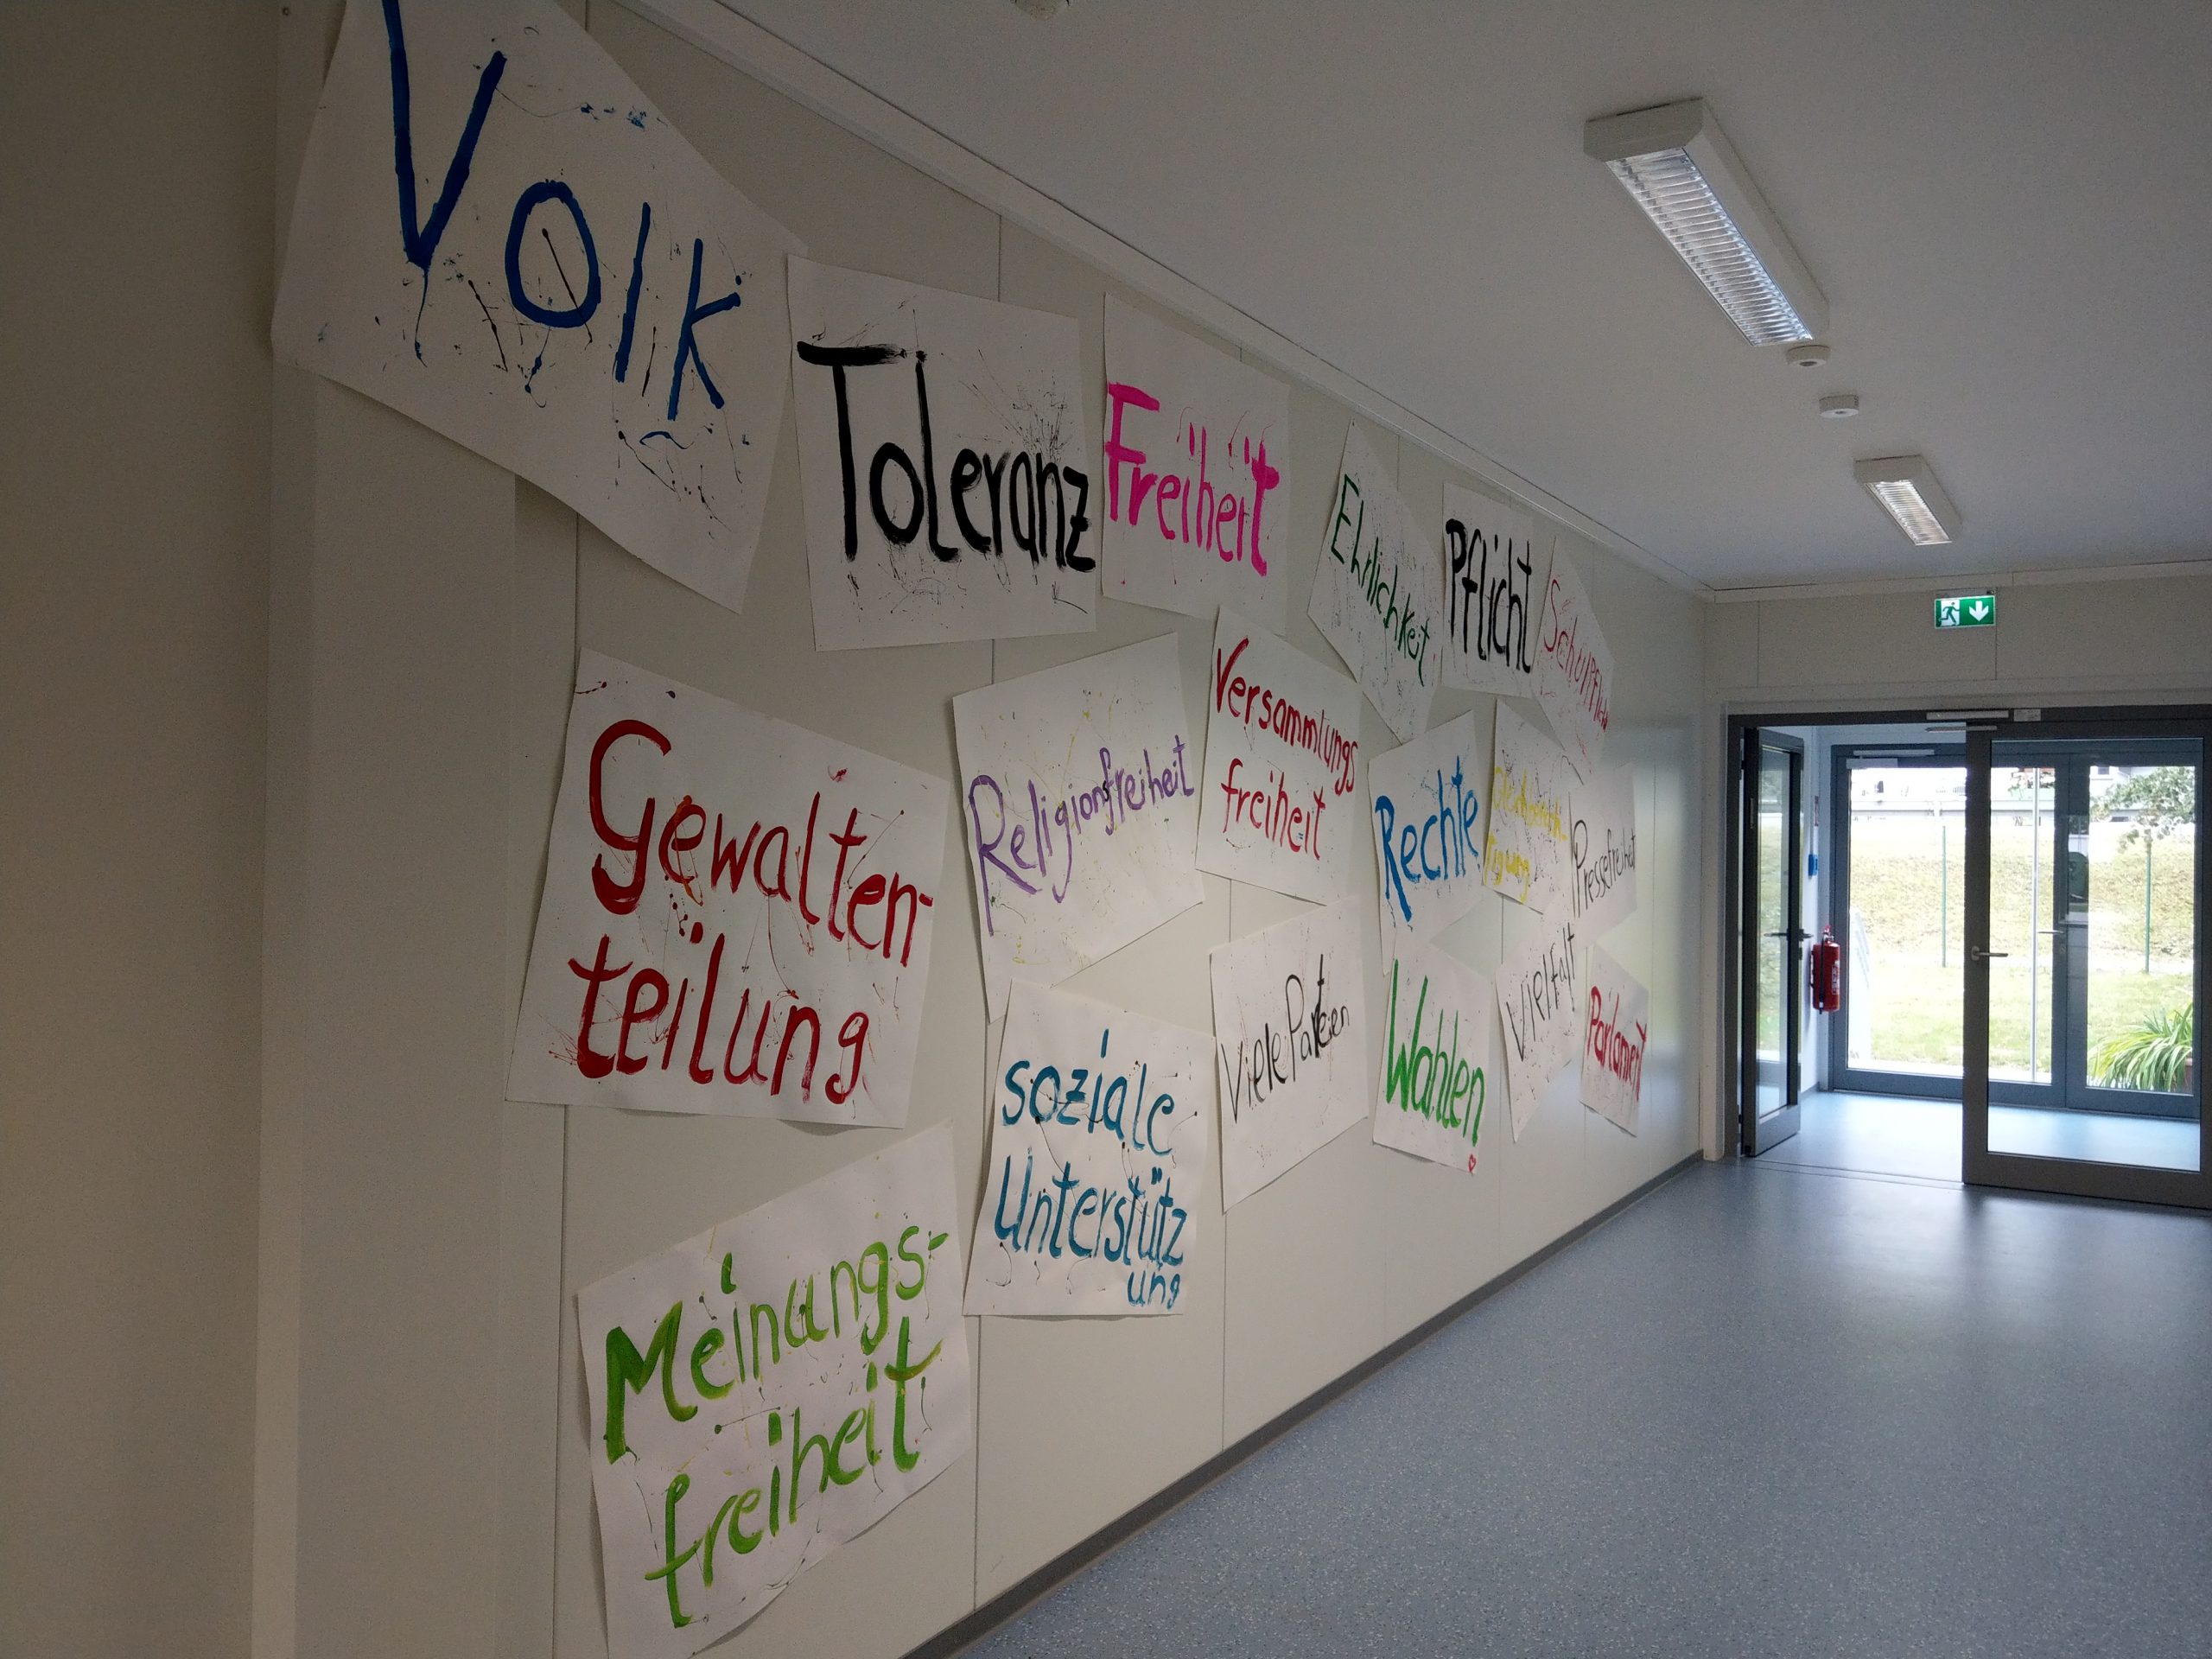 Volk
Toleranz
Freiheit
Ehrlichkeit
Pflicht
Schulpflicht
Gewalten-
teilung
Religionsfreiheit
Versammlungs
freiheit
Rechte
Gleichberech-
tigung
Pressefreiheit
soziale
Unterstütz
ung
Viele Parteien
Wahlen
Vielfalt
Parlament
Meinungs-
freiheit